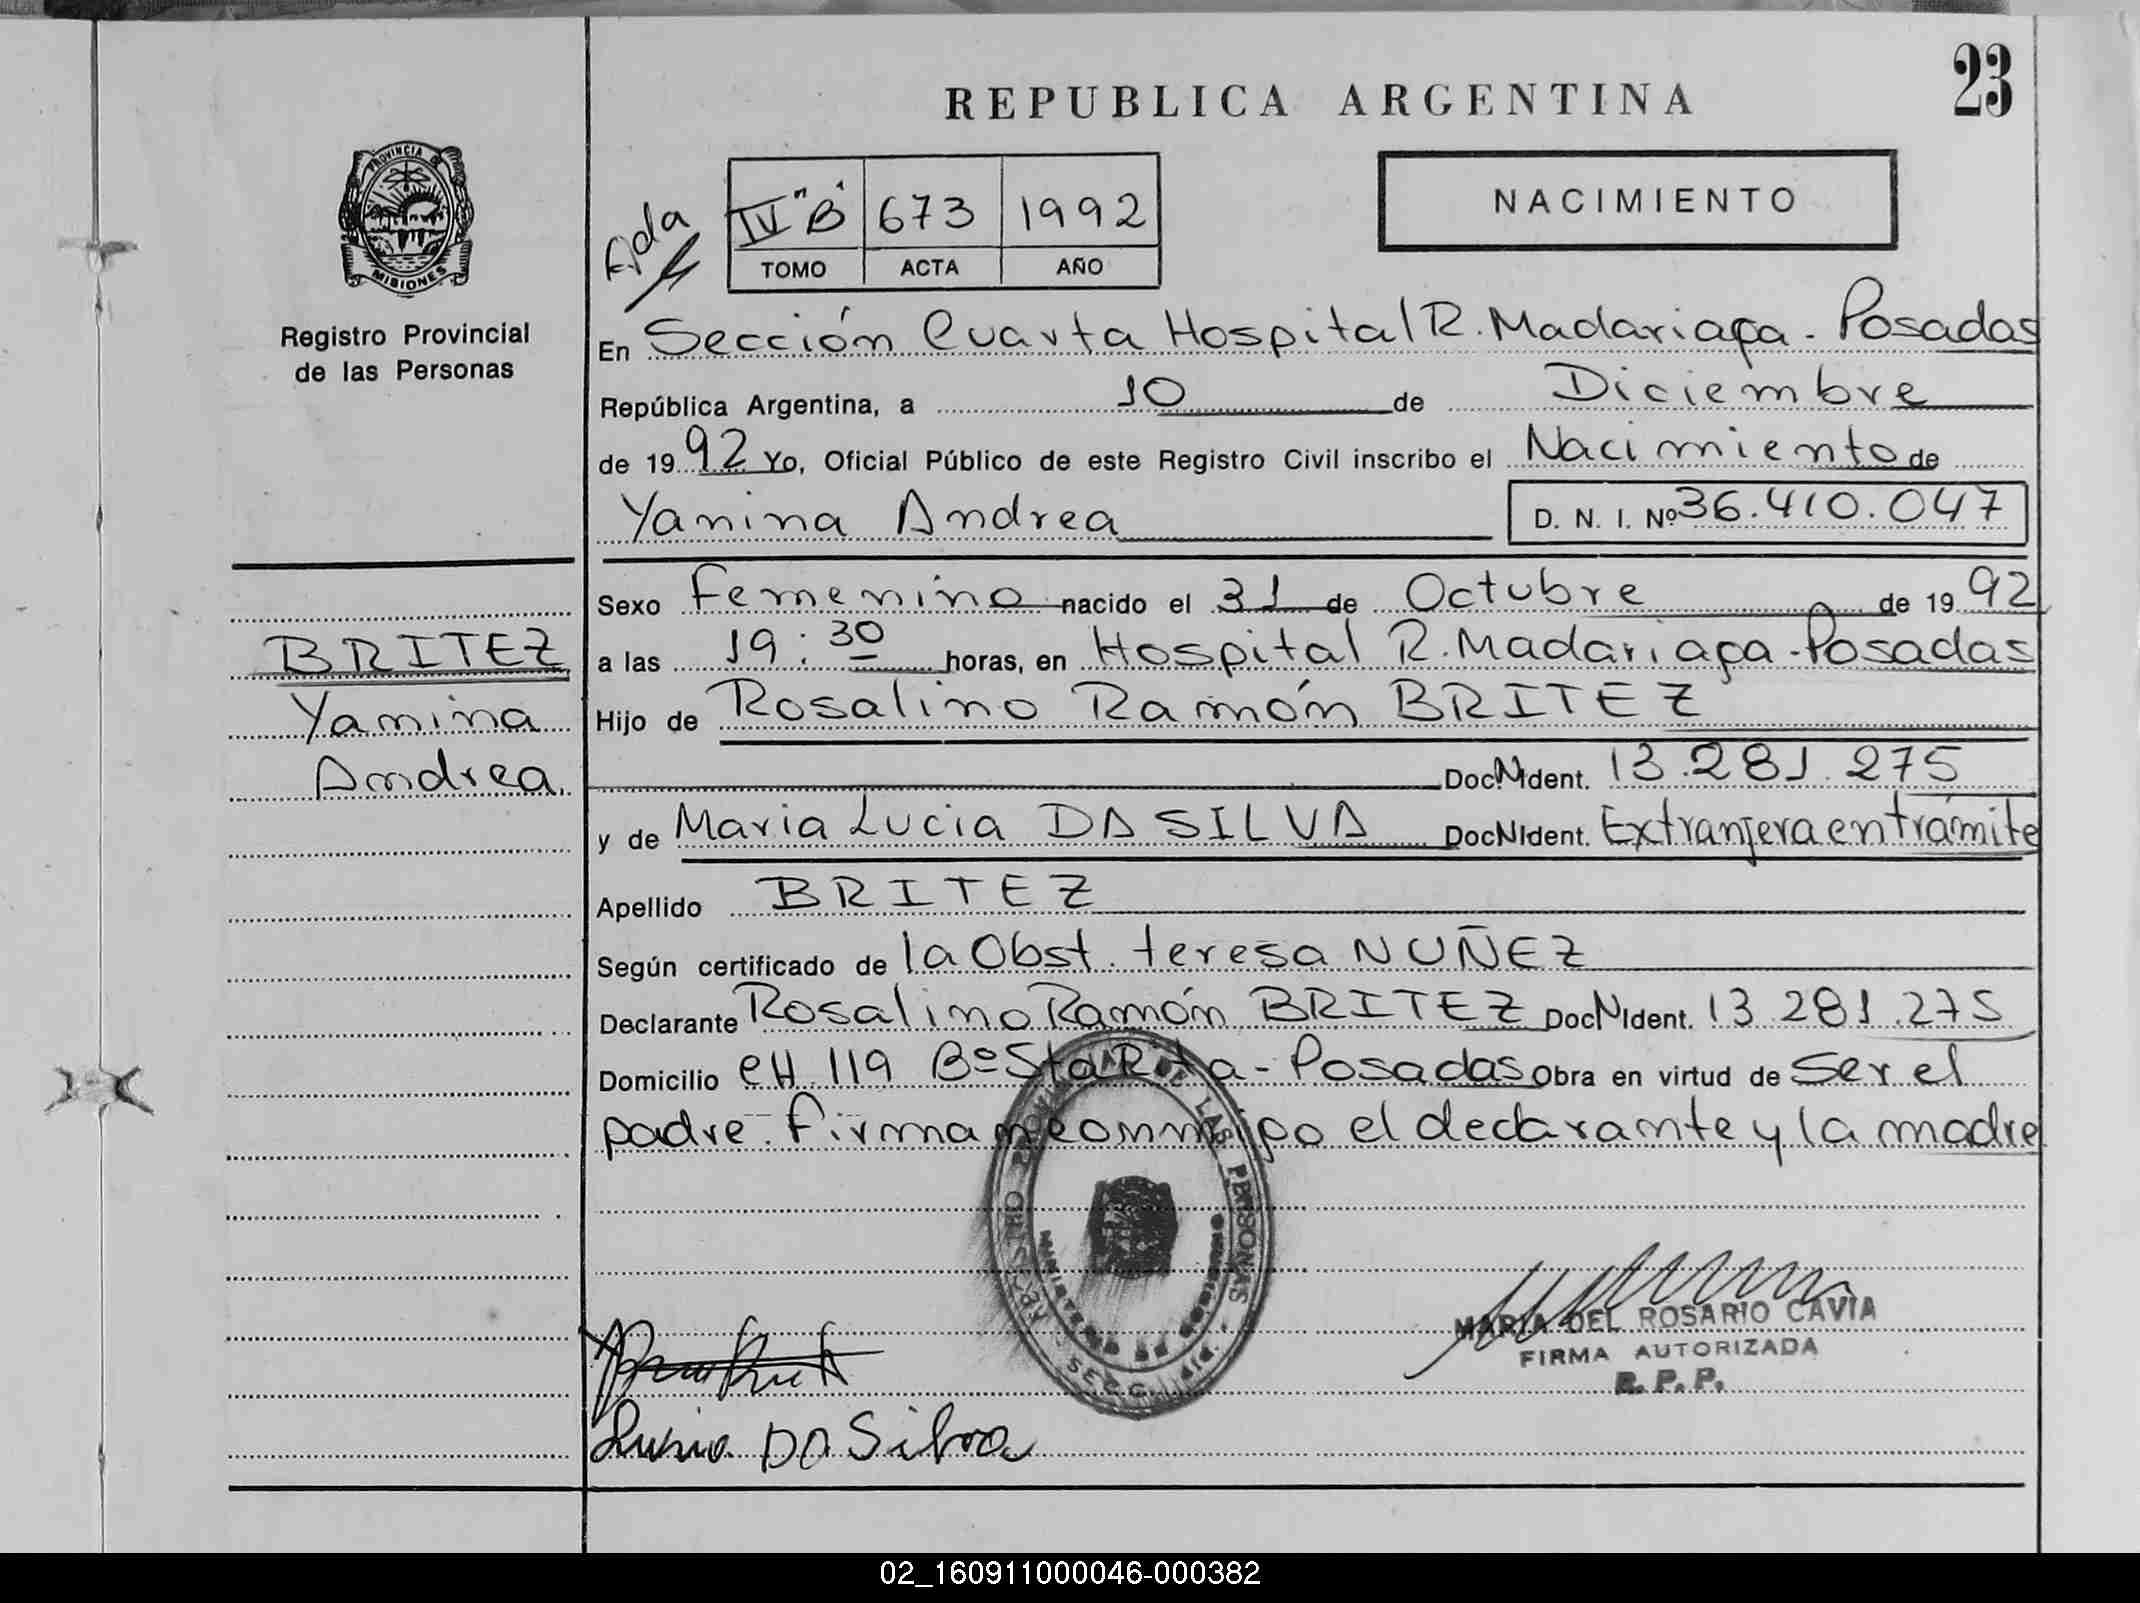 23
REPUBLICA ARGENTINA
PROVINCIA DE
MISIONES
Registro Provincial
de las Personas
IV "B" 673 1992
TOMO ACTA AÑO
NACIMIENTO
En Sección Cuarta Hospital R. Madariaga - Posadas
República Argentina, a 10 de Diciembre
de 1992 Yo, Oficial Público de este Registro Civil inscribo el Nacimiento de
Yanina Andrea D. N. I. Nº 36.410.047
Sexo Femenino nacido el 31 de Octubre de 1992
BRITEZ
Yanina
Andrea
a las 19:30 horas, en Hospital R. Madariaga - Posadas
Hijo de Rosalino Ramón BRITEZ
Doc. N Ident. 13.281.275
y de Maria Lucia DA SILVA Doc N Ident. Extranjera en trámite
Apellido BRITEZ
Según certificado de la Obst. teresa NUÑEZ
Declarante Rosalino Ramón BRITEZ Doc N Ident. 13.281.275
Domicilio CH 119 Bº Sta Rita - Posadas Obra en virtud de Ser el
padre. Firman conmigo el declarante y la madre
LAS PERSONAS
MARIA DEL ROSARIO CAVIA
FIRMA AUTORIZADA
R. P. P.
Lucia DA Silva
02_160911000046-000382